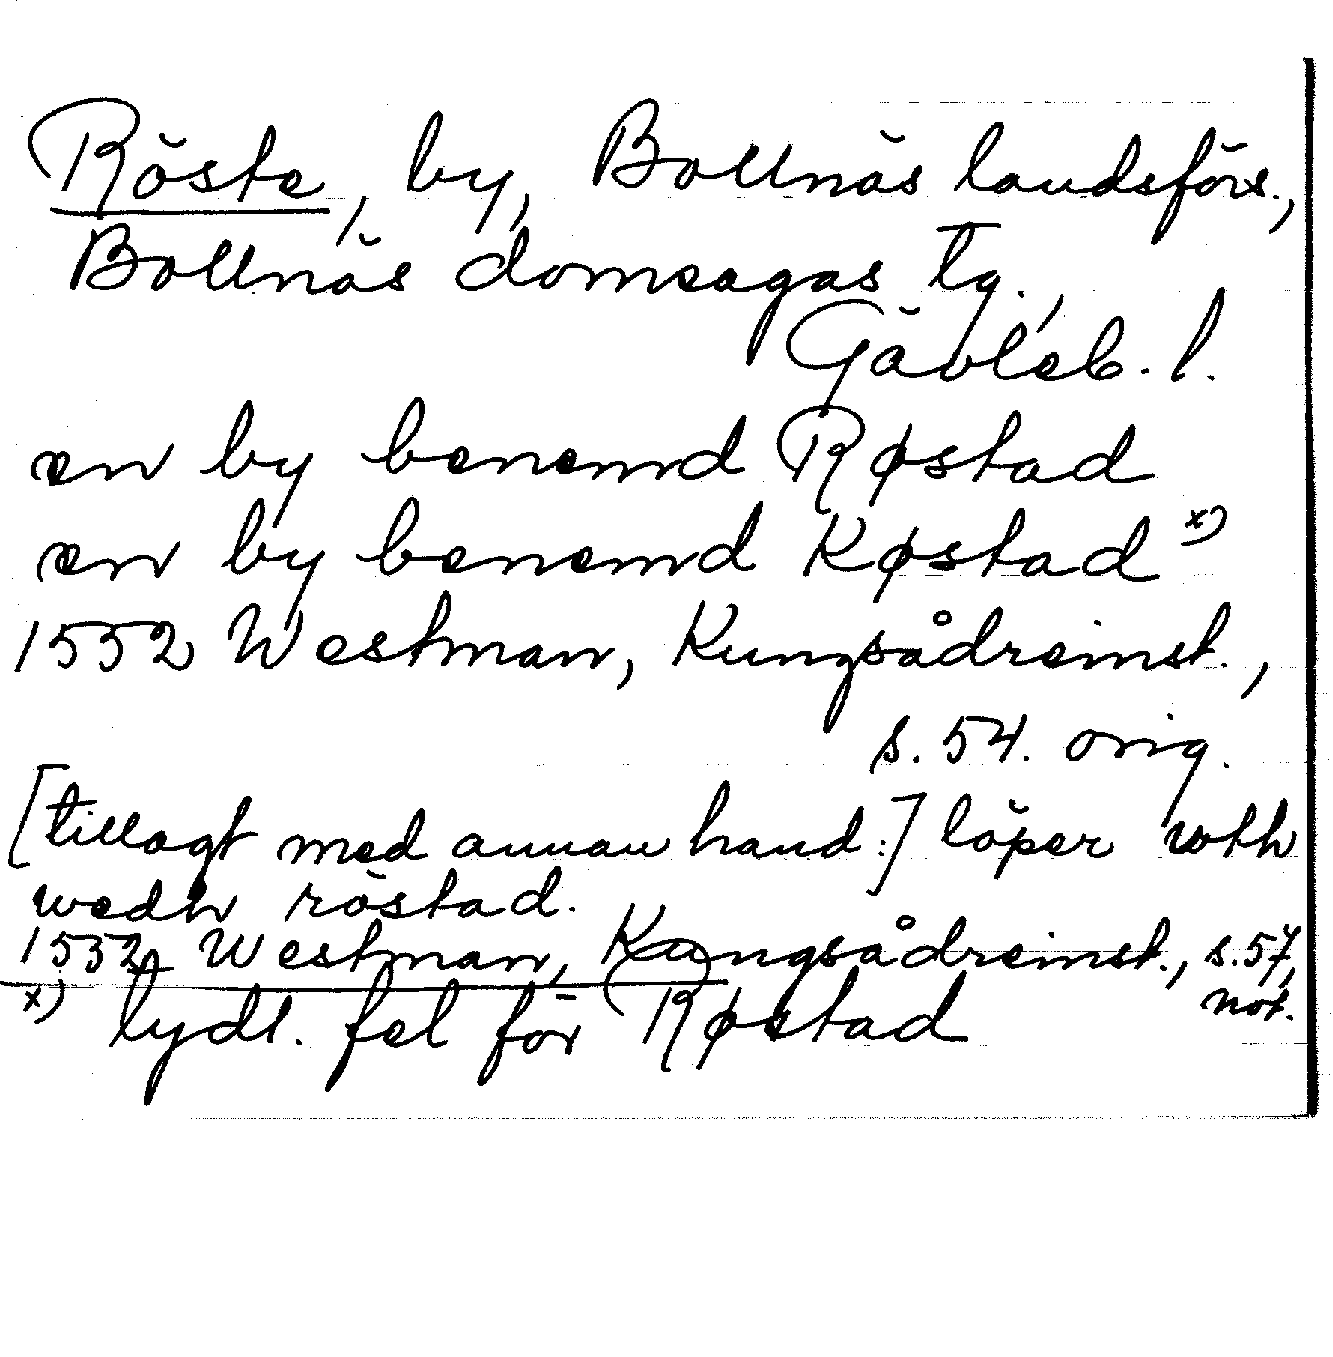 Röste, by, Bollnäs landsförs.,
Bollnäs domsagas tg.,
Gävleb. l.
en by benemd Røstad
en by benemd Køstad x)
1552 Westman, Kungsådreinst.,
s. 54. orig.
[tillagt med annan hand:] löper wth
wedh röstad.
1552 Westman, Kungsådreinst., s. 57,
not.
x) tydl. fel för Røstad